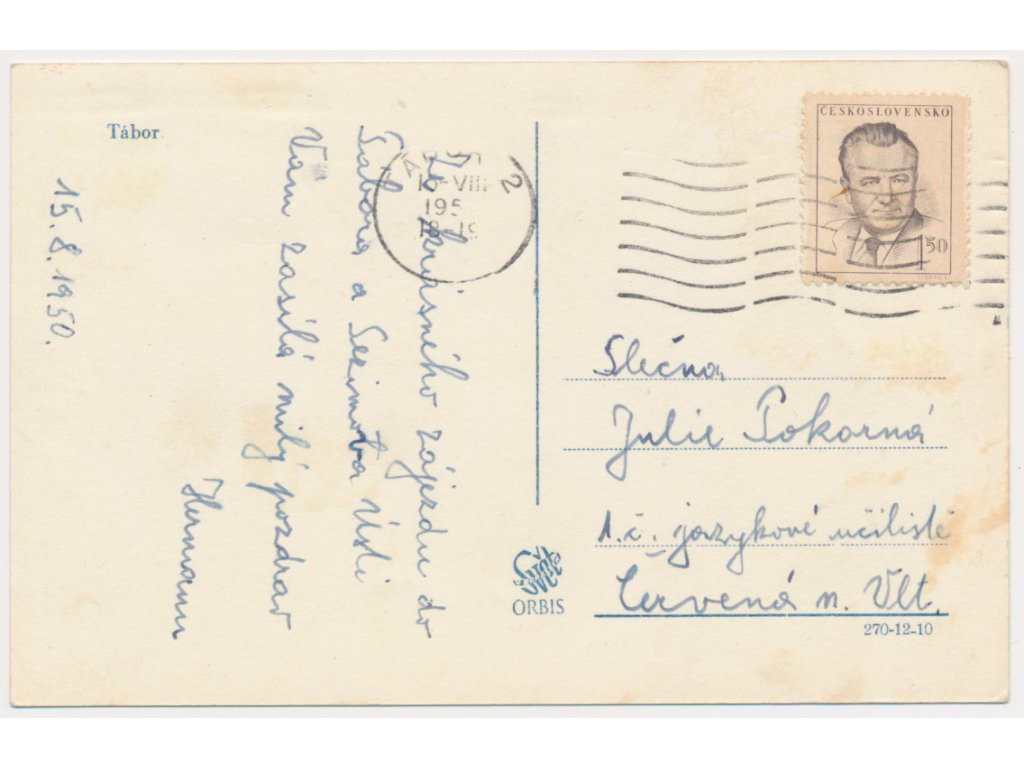 Tábor
15.8.1950.
Ze krásného zájezdu do
Tábora a Sezimova Ústí
Vám zasílá milý pozdrav
Hermann
TÁBOR 2
-VIII
195
18-19
ČESKOSLOVENSKO
1 50
Slečna
Julie Pokorná
1. č. jazykové učiliště
Červená n. Vlt.
Svět
ORBIS
270-12-10